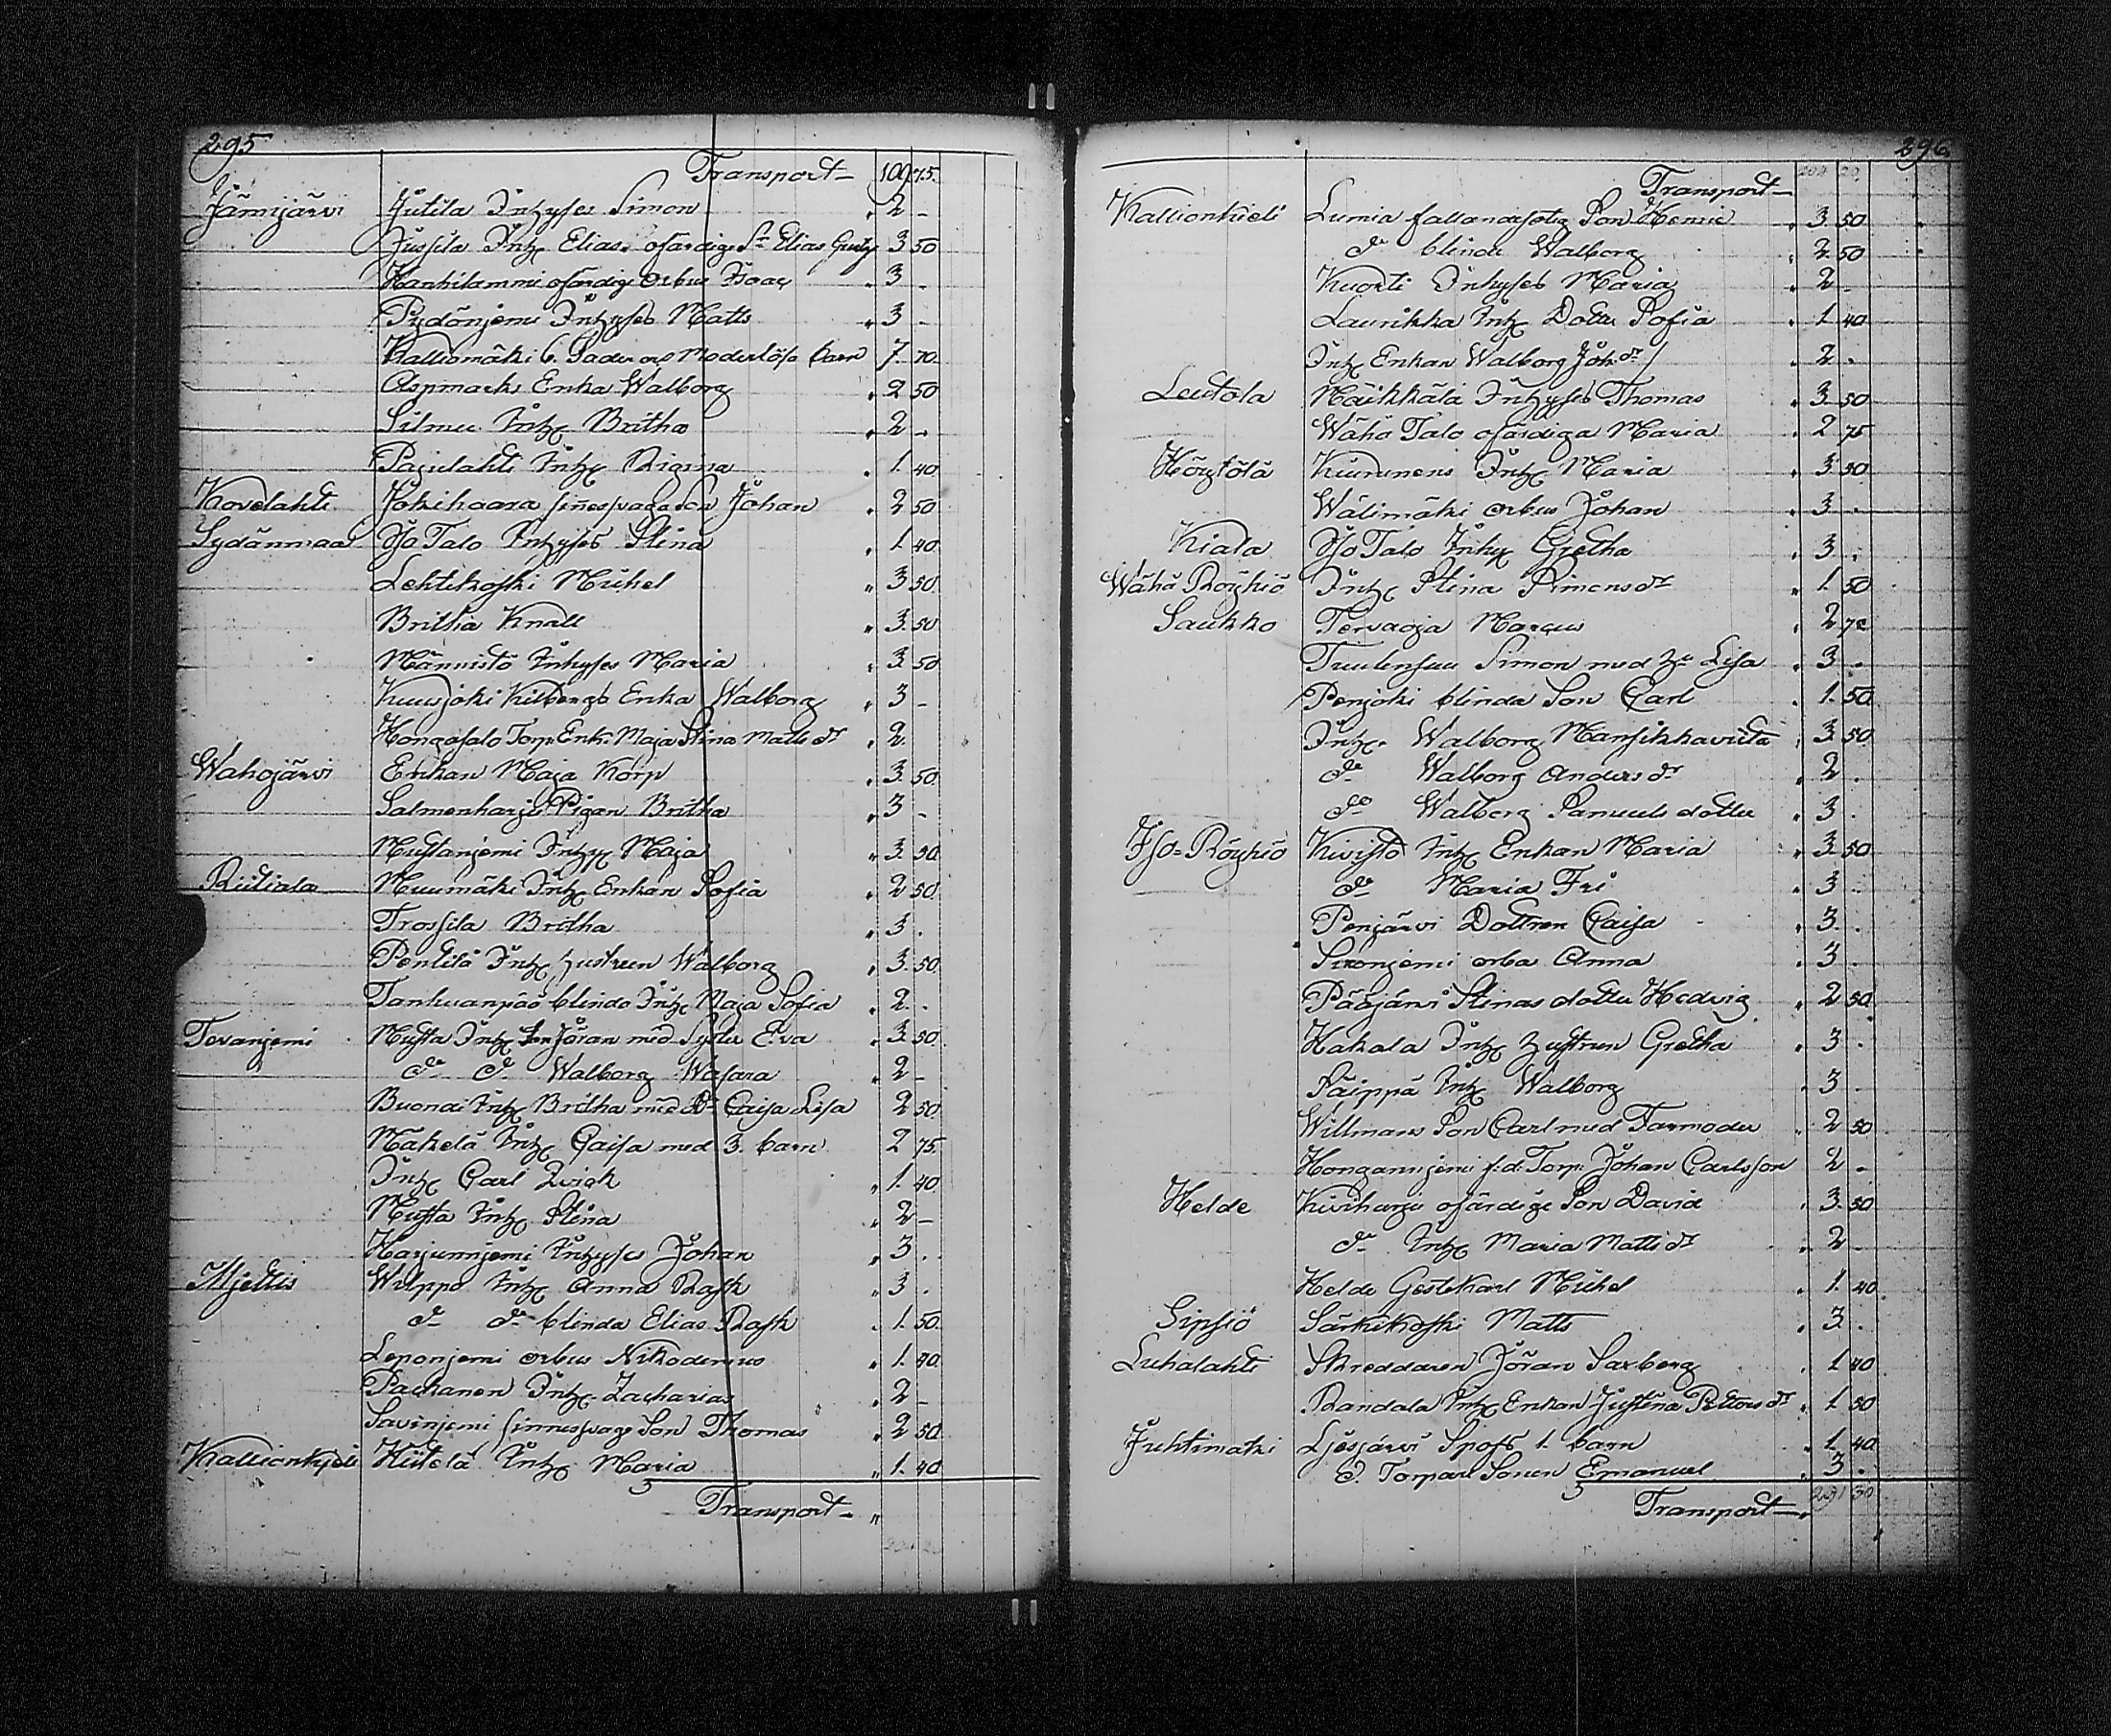 295
Transport 109 75.
Jämijärvi Jutila Inhyses Simon " 2 -
Jussila Inhs Elias ofärdige Sn Elias 3 50
Hankilammi ofärdig Orbus Isaac " 3 -
Pydönjemi Inhyses Matts " 3 -
Kalliomäki 6. Fader och Moderlösa barn 7. 70.
Aspmarks Enka Walborg " 2 50
Silmu Inhs Britha " 2 -
Pajulahti Inhs Regina " 1. 40
Kovelahti Jokihaara sinessvaga Son Johan " 2 50
Sydänmaa Iso Talo Inhyses Stina " 1. 40
Lehtikoski Mickel " 3 50.
Britha Knall " 3. 50
Männistö Inhyses Maria " 3. 50
Kuusjoki Kilbergs Enka Walborg " 3 -
Hongasalo Torp. Enk. Maja Stina Matts dr " 2.
Wahojärvi Enkan Maja Korp " 3. 50.
Salmenharju Pigan Britha " 3 -
Mustanjemi Inhs Maja " 3. 50.
Riitiala Muumäki Inhs Enkan Sofia " 2 50.
Trossila Britha " 3.
Pentilä Inhs hustrun Walborg " 3. 50
Tanhuanpää blinda Inhs Maja Sofia " 2. -
Tevanjemi Musta Inhs Jöran med Syster Eva " 3. 50.
do do Walborg Wasara " 2 -
Buondi Inhs Britha med Dr Caisa Lisa 2 50.
Mäkelä Inhs Caisa med 3. barn 2 75.
Inhs Carl Qvick " 1. 40
Musta Inhs Stina " 2 -
Harjunnjemi Inhyses Johan " 3. .
Mjettis Wulppo Inhs Anna Rask " 3 .
do do blinda Elias Rask . 1. 50.
Leponjemi orbus Nikodemus " 1. 40.
Packanen Inhs Zacharias " 2 -
Savinjemi sinnessvage Son Thomas " 2 50.
Kallionkjeli Hiitelä Inhs Maria " 1. 40
Transport "
296
Transport
Kallionkieli Lumia fallandesotig Son Henric " 3. 50
do blinde Walborg " 2. 50
Kuorti Inhyses Maria " 2 -
Laurikka Inhs Dotter Sofia " 1 40
Inhs Enkan Walborg Joh. dr " 2 .
Leutola Mäikkälä Inhyses Thomas " 3. 50
Wähä Talo ofärdiga Maria " 2 75
Höytölä Kuurunens Inhs Maria " 3 50
Wälimäki orbus Johan " 3 .
Kiala Iso Talo Inhs Gretha " 3 .
Wähä Röyhiö Inhs Stina Simons dr " 1. 50
Saukko Tervaoja Marcus " 2 75
Tuulensuu Simon med hu Lisa " 3 .
Penjoki blinda Son Carl . 1. 50
Inhs Walborg Mansikkaviita " 3. 50
do Walborg Anders dr " 2 .
do Walborg Samuels dotter " 3 .
Iso=Röyhiö Kivistö Inhs Enkan Maria " 3. 50
do Maria Fri " 3 .
Penjärvi Dottren Caisa " 3. .
Sironjemi orba Anna " 3 .
Pääjärvi Stinas dotter Hedvig " 2 50
Hakala Inhs hustrun Gretha " 3 .
Päippä Inhs Walborg " 3 .
Willmans Son Carl med Farmoder " 2 50
Honganjemi f.d. Torp. Johan Carlsson 2 -
Helde Kiviharju ofärdige Son David " 3. 50
do Inhs Maria Matts dr " 2 .
Helde Gestekarl Mickel " 1. 40.
Sipsiö Särkikoski Matts " 3. .
Luhalahti Skreddaren Jöran Saxberg " 1 40
Randala Inhs Enkan Justina Petters dr " 1. 50
Juhtimäki Ljesjärvi Spofs 1. barn " 1. 40
d. Torpare Sonen Emanuel " 3 .
Transport 291 30